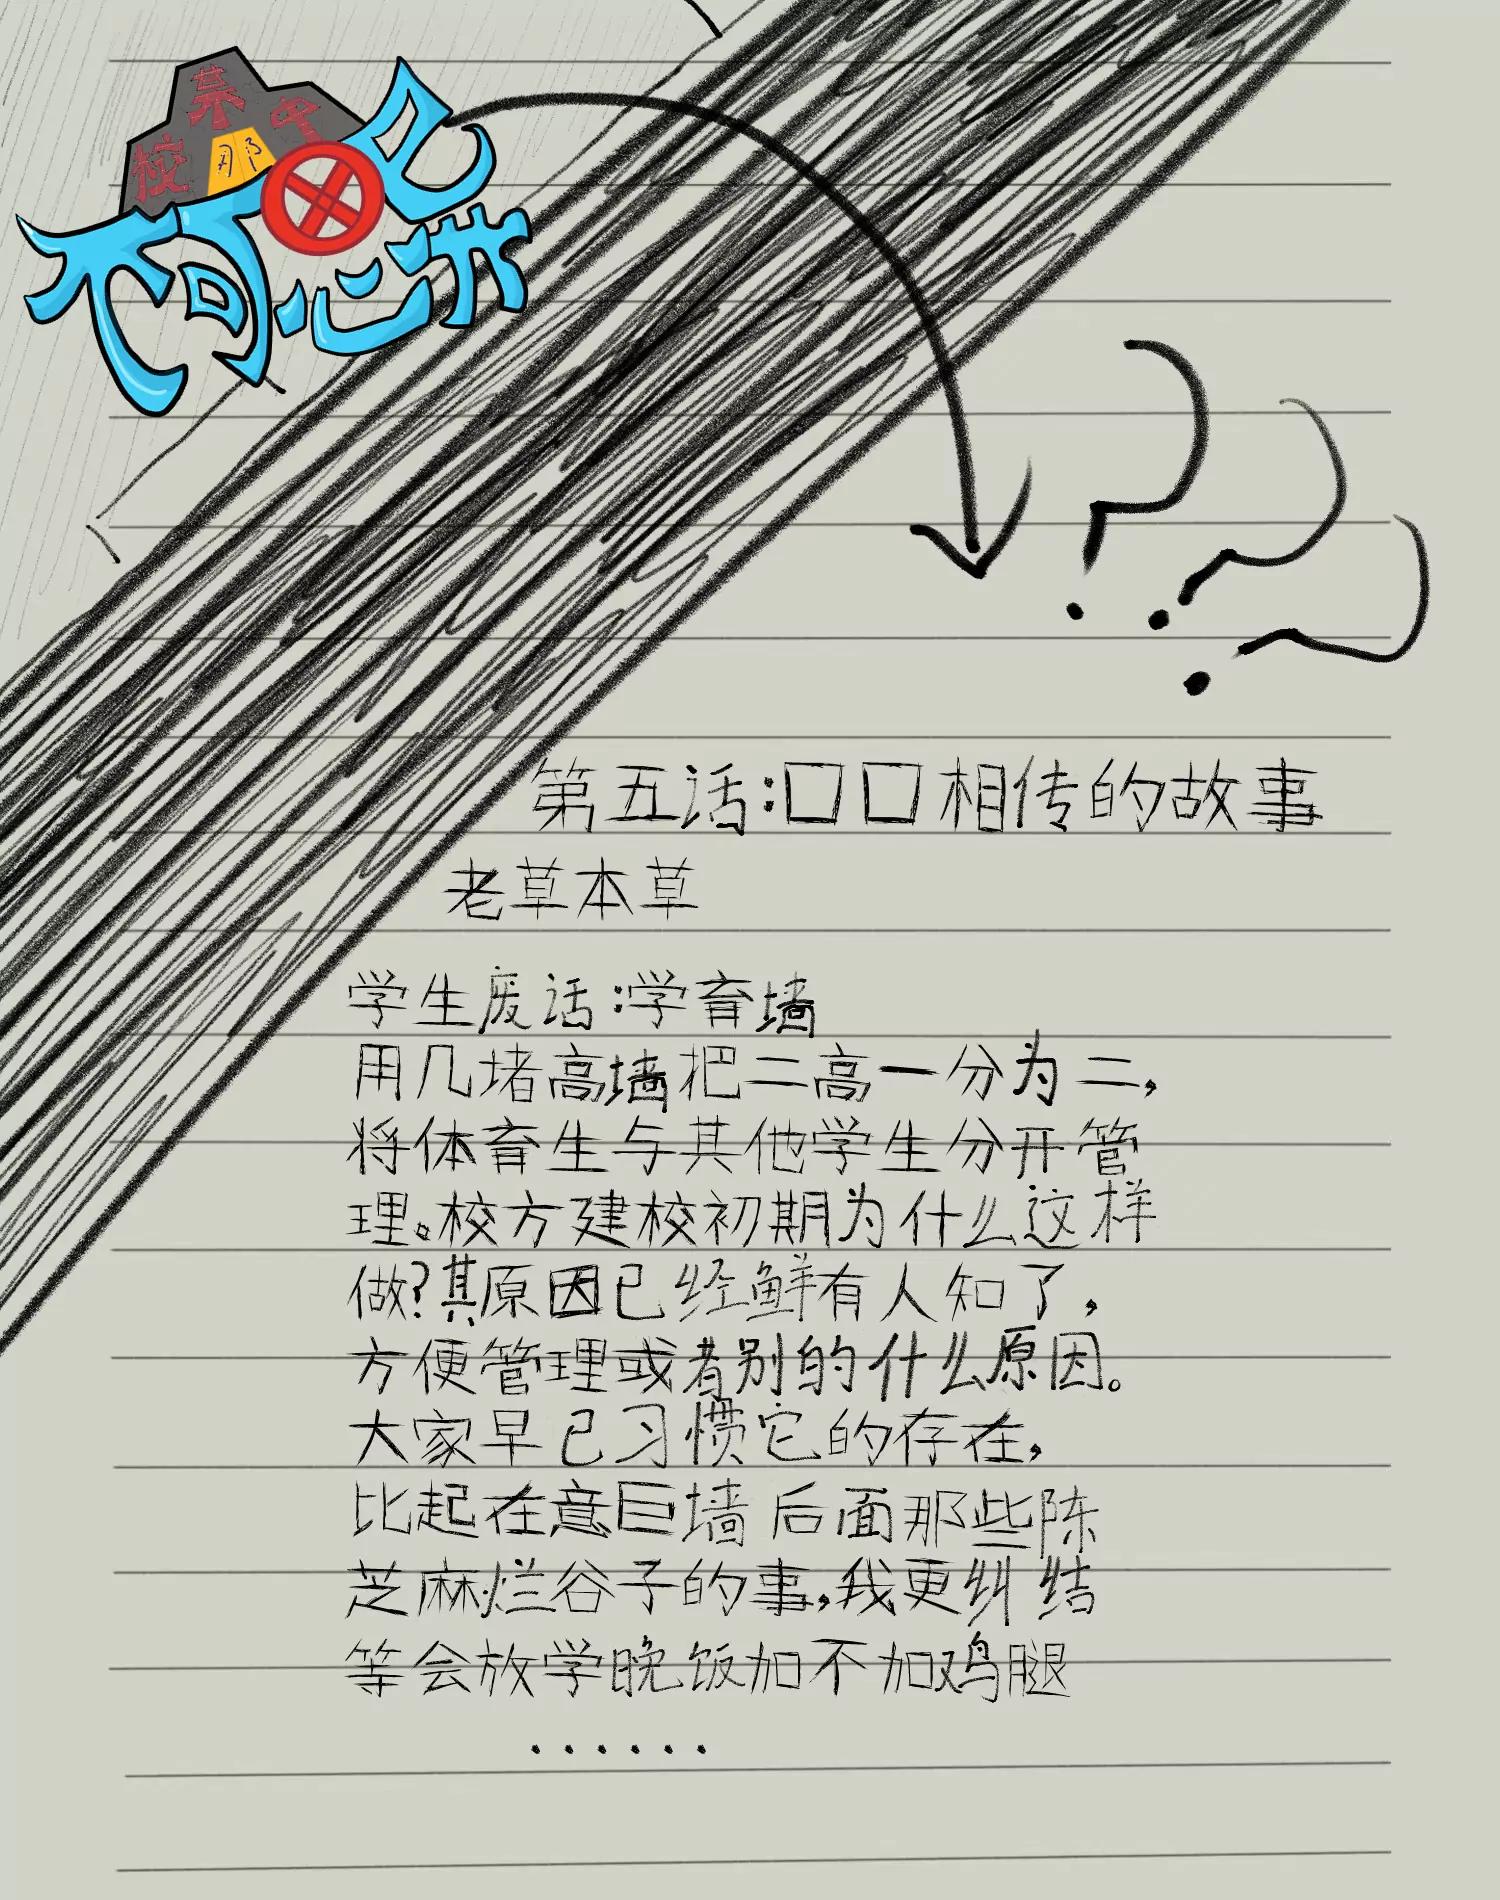 校
中
那
不可
第五话:口口相传的故事
老草本草
学生废话:学育墙
用几堵高墙把二高一分为二,
将体育生与其他学生分开管
理。校方建校初期为什么这样
做?其原因已经鲜有人知了,
方便管理或者别的什么原因。
大家早已习惯它的存在,
比起在意巨墙后面那些陈
芝麻烂谷子的事,我更纠结
等会放学晚饭加不加鸡腿
......
???